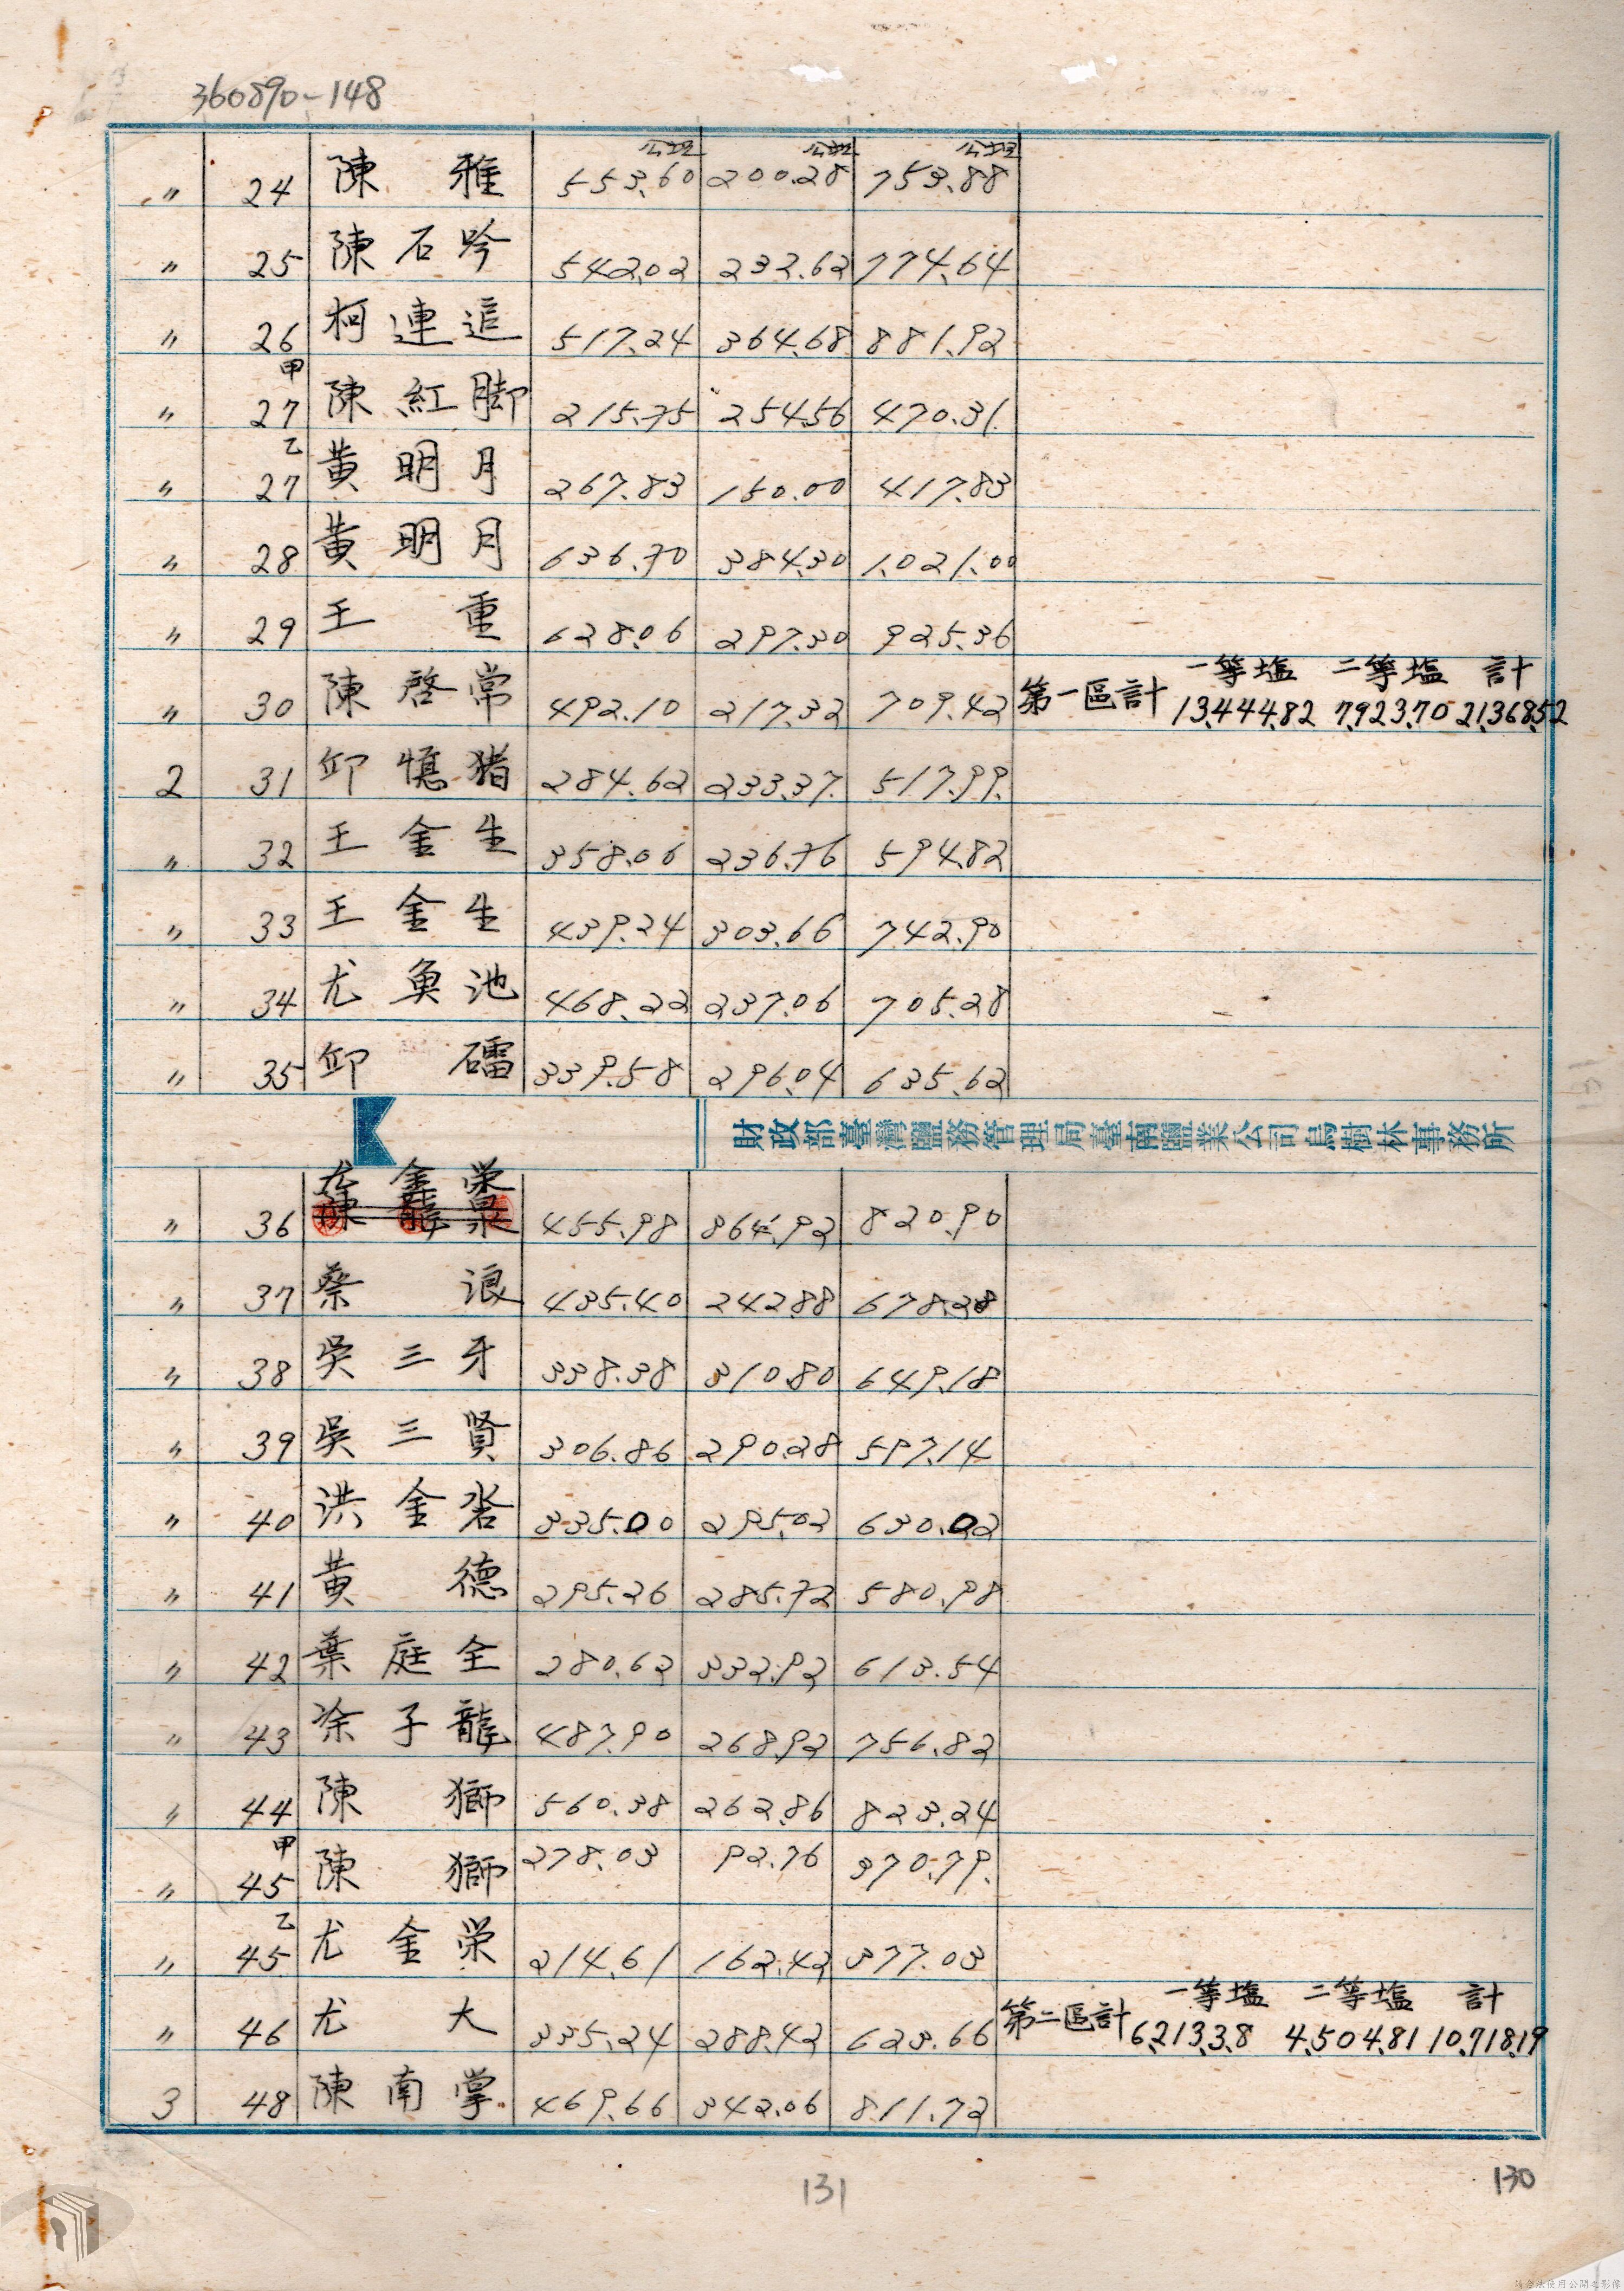 360890-148
公斤 公斤 公斤
〃 24 陳 雅 553.60 200.28 753.88
〃 25 陳石吟 542.02 232.62 774.64
〃 26 柯連追 517.24 364.68 881.92
〃 甲27 陳紅脚 215.75 254.56 470.31
〃 乙27 黃明月 267.83 150.00 417.83
〃 28 黃明月 636.70 384.30 1,021.00
〃 29 王 重 628.06 297.30 925.36
一等塩 二等塩 計
〃 30 陳啓常 492.10 217.32 709.42 第一區計 13,444.82 7,923.70 21,368.52
2 31 邱憶猪 284.62 233.37 517.99
〃 32 王金生 358.06 236.76 594.82
〃 33 王金生 439.24 303.66 742.90
〃 34 尤魚池 468.22 237.06 705.28
〃 35 邱 礌 339.58 296.04 635.62
財政部臺灣鹽務管理局臺南鹽業公司烏樹林事務所
尤金栄
〃 36 455.98 364.92 820.90
〃 37 蔡 浪 435.40 242.88 678.28
〃 38 吳三牙 338.38 310.80 649.18
〃 39 吳三賢 306.86 290.28 597.14
〃 40 洪金 335.00 295.02 630.02
〃 41 黃 德 295.26 285.72 580.98
〃 42 葉庭全 280.62 332.92 613.54
〃 43 涂子龍 487.90 268.92 756.82
〃 44 陳 獅 560.38 262.86 823.24
〃 甲45 陳 獅 278.03 92.76 370.79
〃 乙45 尤金栄 214.61 162.42 377.03
一等塩 二等塩 計
〃 46 尤 大 335.24 288.42 623.66 第二區計 6,213.38 4,504.81 10,718.19
3 48 陳南掌 469.66 342.06 811.72
131
130
請合法使用公開之影像